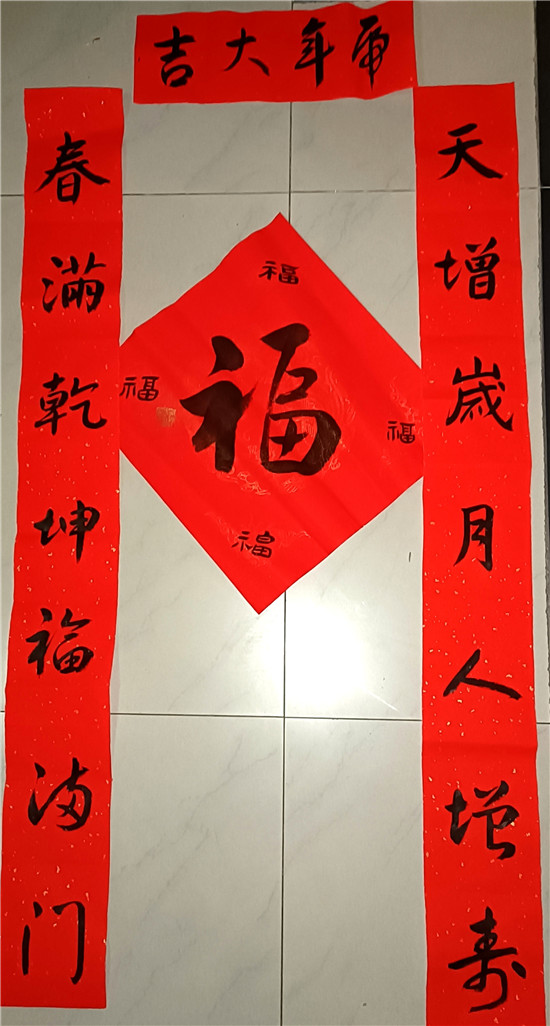 虎年大吉
天增歲月人增寿
春滿乾坤福满门
福
福
福
福
福